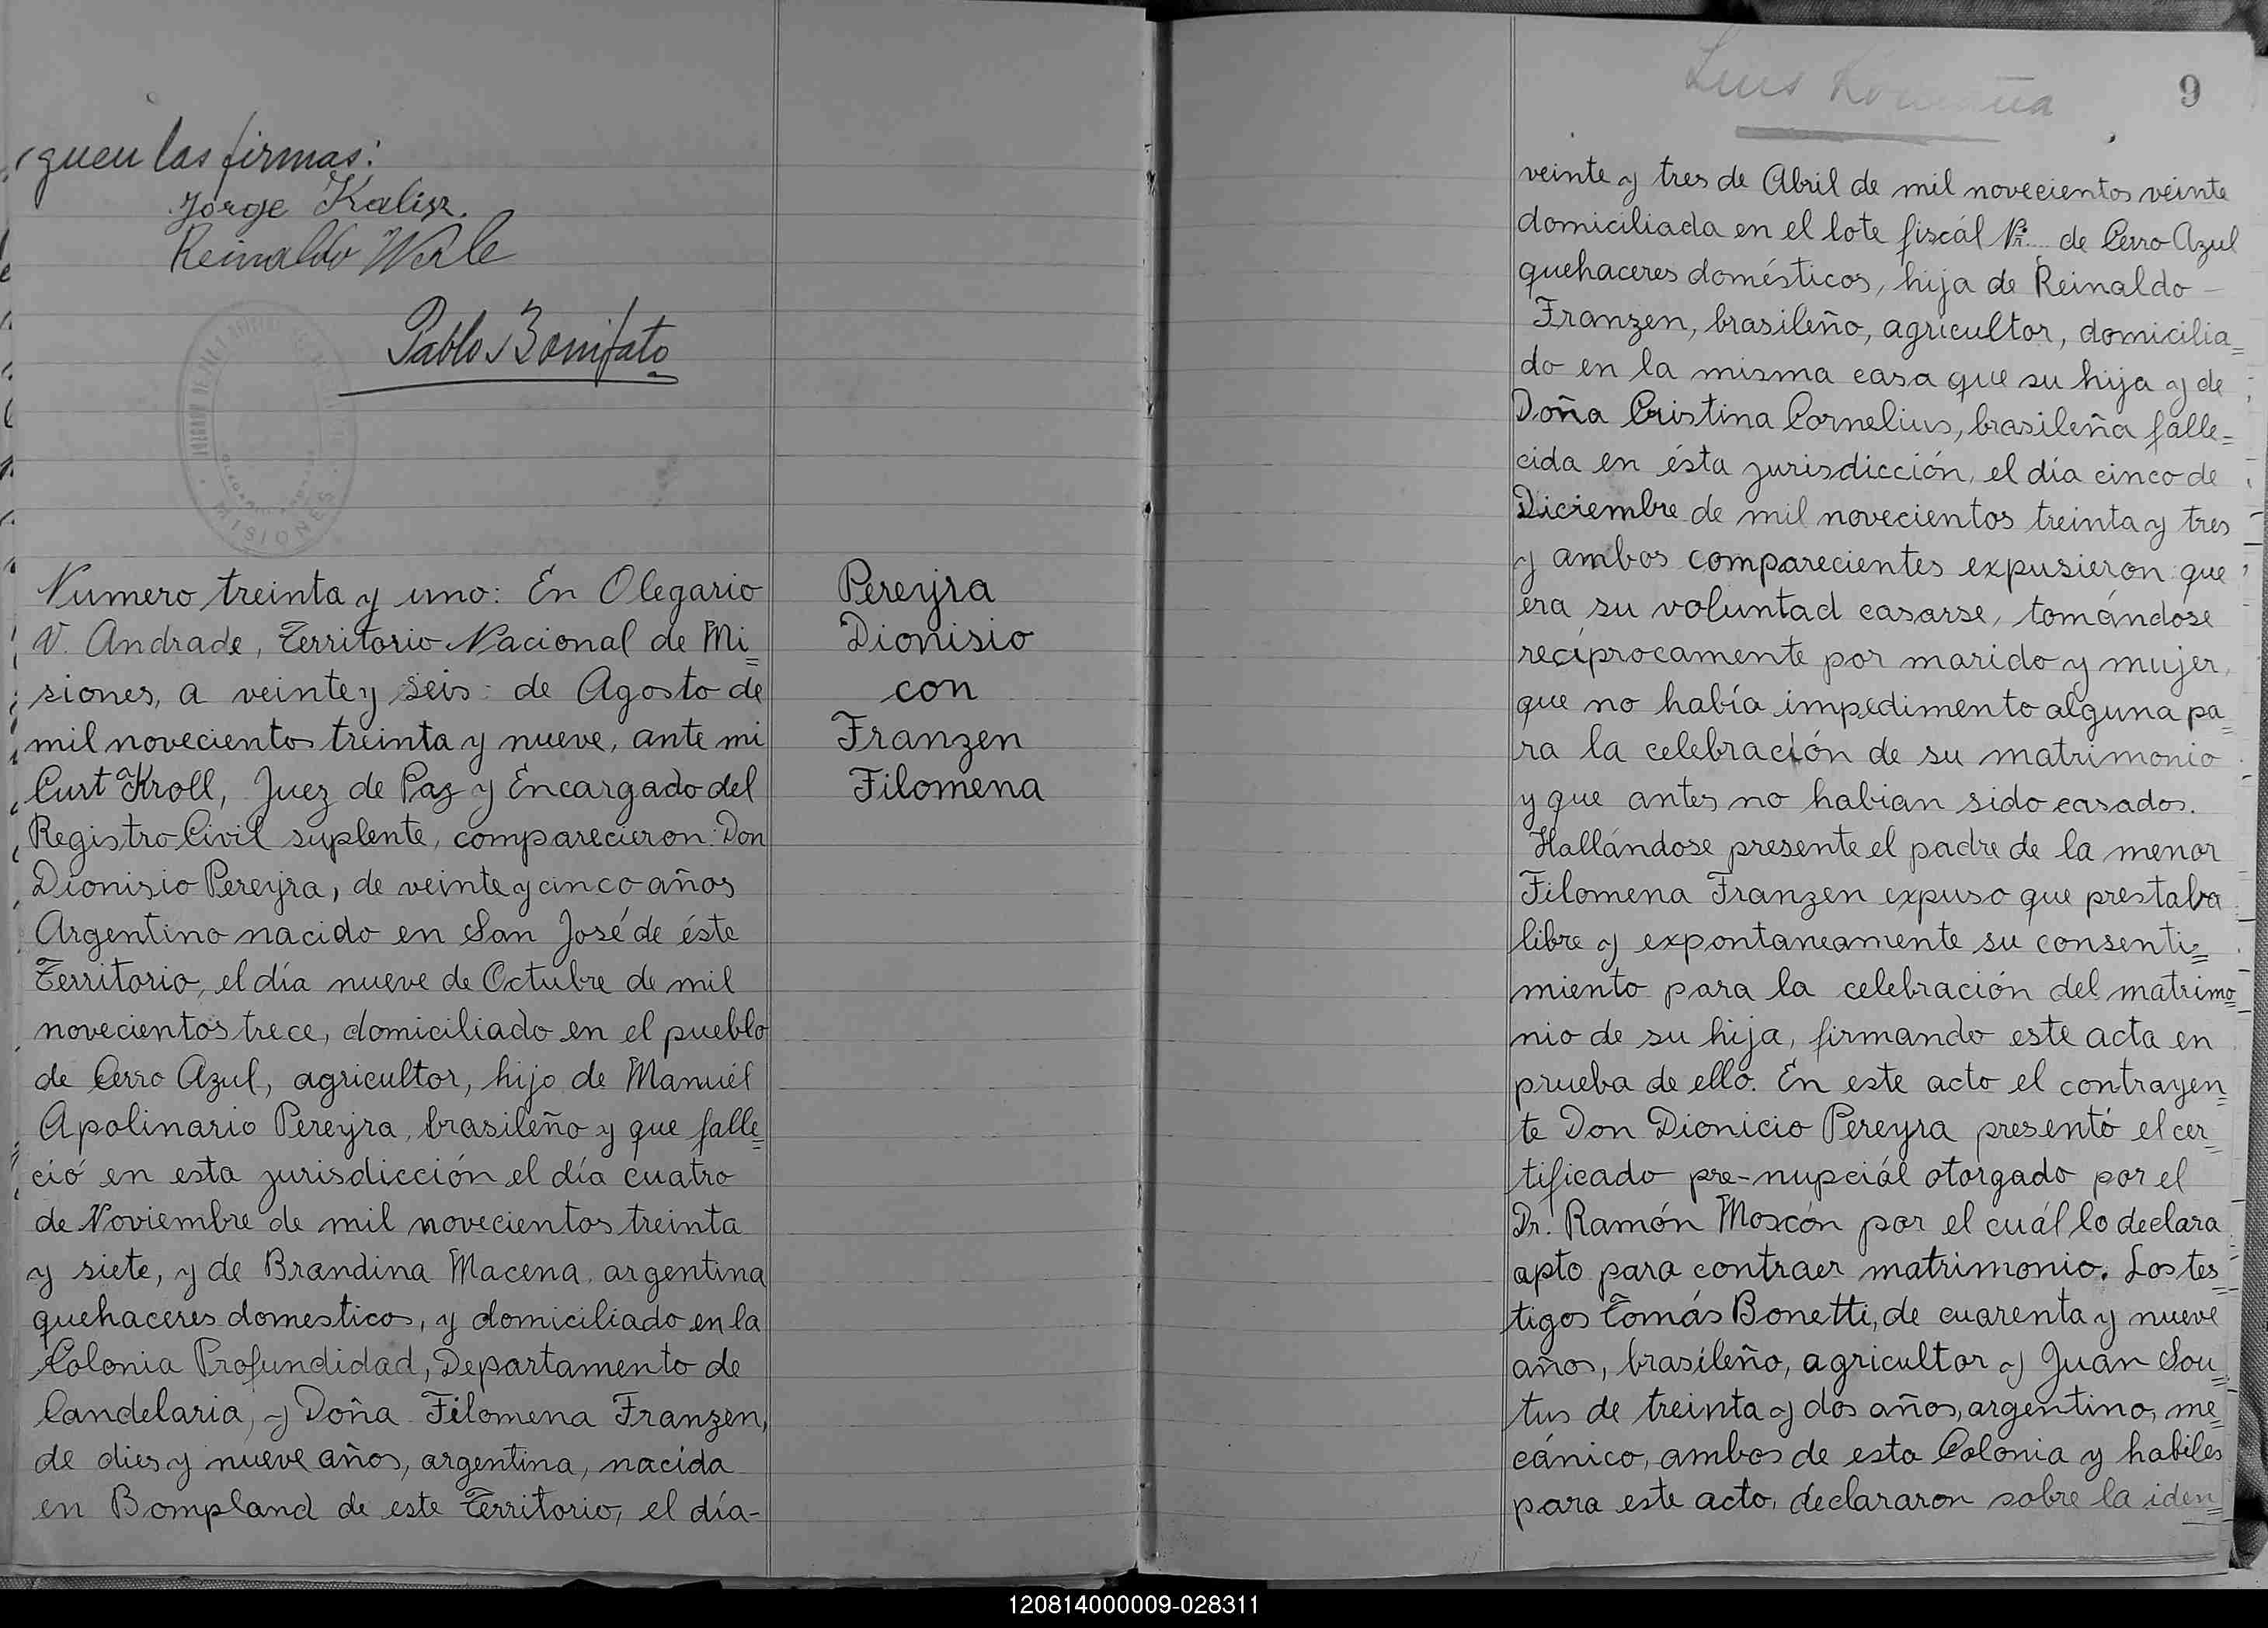 guen las firmas:
Jorge Kalisz.
Reinaldo Werle
Pablo Bonifato
MISIONES
Numero treinta y uno: En Olegario
V. Andrade, Territorio Nacional de Mi=
siones, a veinte y seis: de Agosto de
mil novecientos treinta y nueve, ante mi
Curt Kroll, Juez de Paz y Encargado del
Registro Civil suplente, comparecieron: Don
Dionisio Pereyra, de veinte y cinco años
Argentino nacido en San José de éste
Territorio, el día nueve de Octubre de mil
novecientos trece, domiciliado en el pueblo
de Cerro Azul, agricultor, hijo de Manuél
Apolinario Pereyra, brasileño y que falle=
ció en esta jurisdicción el día cuatro
de Noviembre de mil novecientos treinta
y siete, y de Brandina Macena, argentina
quehaceres domesticos, y domiciliado en la
Colonia Profundidad, Departamento de
Candelaria, y Doña Filomena Franzen,
de dies y nueve años, argentina, nacida
en Bompland de este Territorio, el día-
Pereyra
Dionisio
con
Franzen
Filomena
Luis
9
veinte y tres de Abril de mil novecientos veinte
domiciliada en el lote fiscál Nr. de Cerro Azul
quehaceres domésticos, hija de Reinaldo -
Franzen, brasileño, agricultor, domicilia=
do en la misma casa que su hija y de
Doña Cristina Cornelius, brasileña falle=
cida en ésta jurisdicción, el día cinco de
Diciembre de mil novecientos treinta y tres
y ambos comparecientes expusieron: que
era su voluntad casarse, tomándose
recíprocamente por marido y mujer,
que no había impedimento alguna pa=
ra la celebración de su matrimonio
y que antes no habian sido casados.
Hallándose presente el padre de la menor
Filomena Franzen expuso que prestaba
libre y expontaneamente su consenti=
miento para la celebración del matrimo=
nio de su hija, firmando este acta en
prueba de ello. En este acto el contrayen=
te Don Dionicio Pereyra presentó el cer=
tificado pre-nupciál otorgado por el
Dr. Ramón Moscón por el cuál lo declara
apto para contraer matrimonio. Los tes=
tigos Tomás Bonetti, de cuarenta y nueve
años, brasileño, agricultor y Juan Sou=
tus de treinta y dos años, argentino, me=
cánico, ambos de esta Colonia y habiles
para este acto, declararon sobre la iden=
120814000009-028311